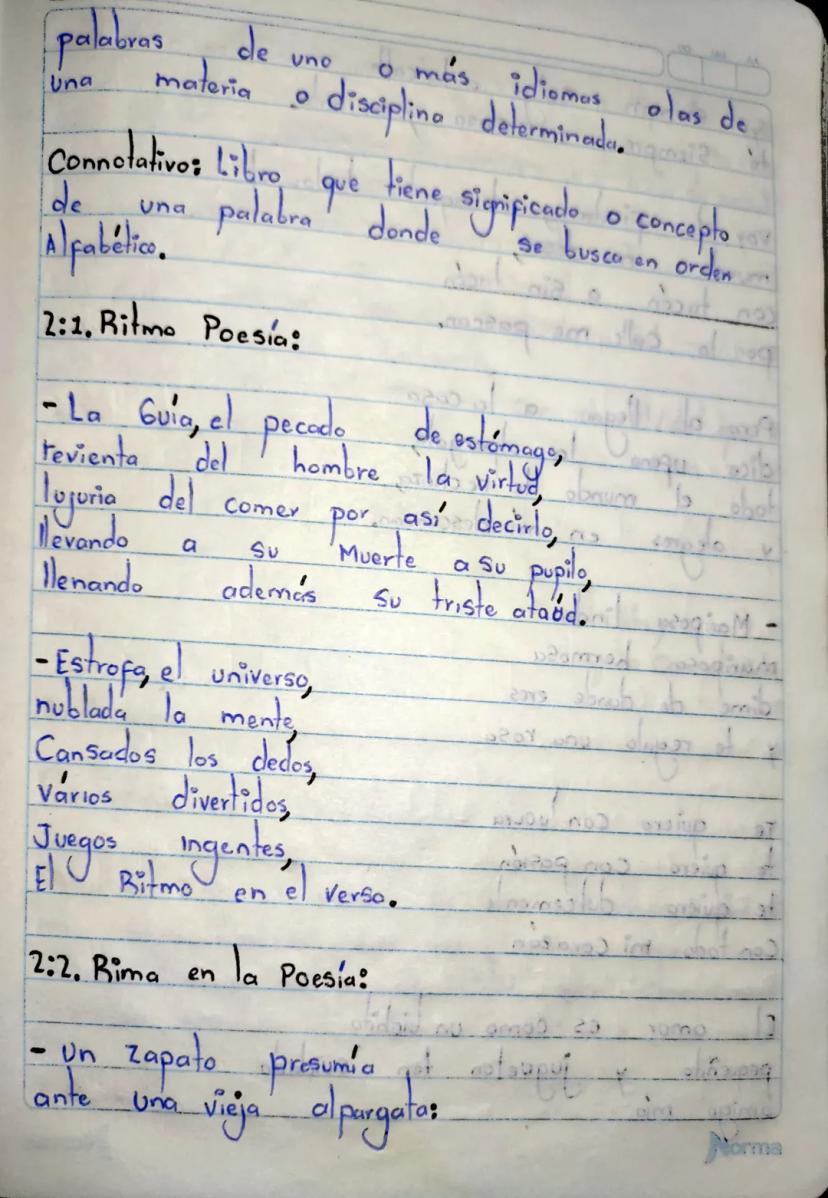 palabras de uno o más idiomas o las de
una materia o disciplina determinada.
Connotativo: Libro que tiene significado o concepto
de una palabra donde se busca en orden
Alfabético.
2:1. Ritmo Poesía:
- La Guía, el pecado de estómago,
revienta del hombre la virtud,
lujuria del comer por así decirlo,
llevando a su Muerte a su pupilo,
llenando además su triste ataúd.
- Estrofa, el universo,
nublada la mente,
Cansados los dedos,
Vários divertidos,
Juegos ingentes,
El Ritmo en el verso.
2:2. Rima en la Poesía:
- Un zapato presumía
ante una vieja alpargata:
Norma